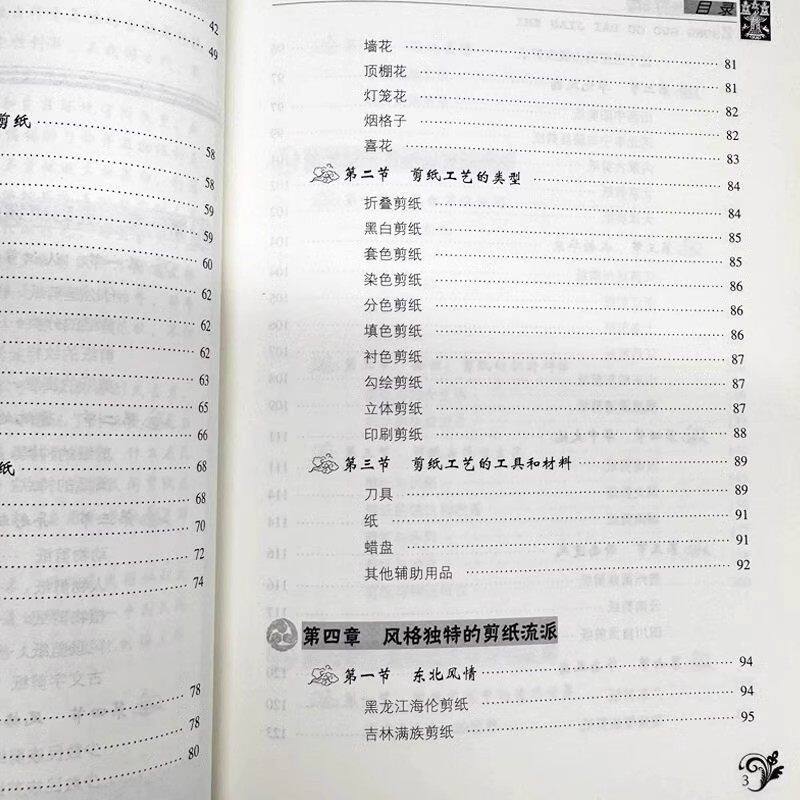 42
49
剪纸
58
58
59
59
60
62
62
62
63
65
66
纸
68
68
70
72
74
78
78
80
目录
墙花 81
顶棚花 81
灯笼花 82
烟格子 82
喜花 83
第二节 剪纸工艺的类型 84
折叠剪纸 84
黑白剪纸 85
套色剪纸 85
染色剪纸 86
分色剪纸 86
填色剪纸 86
衬色剪纸 87
勾绘剪纸 87
立体剪纸 87
印刷剪纸 88
第三节 剪纸工艺的工具和材料 89
刀具 89
纸 91
蜡盘 91
其他辅助用品 92
第四章 风格独特的剪纸流派
第一节 东北风情 94
黑龙江海伦剪纸 94
吉林满族剪纸 95
3